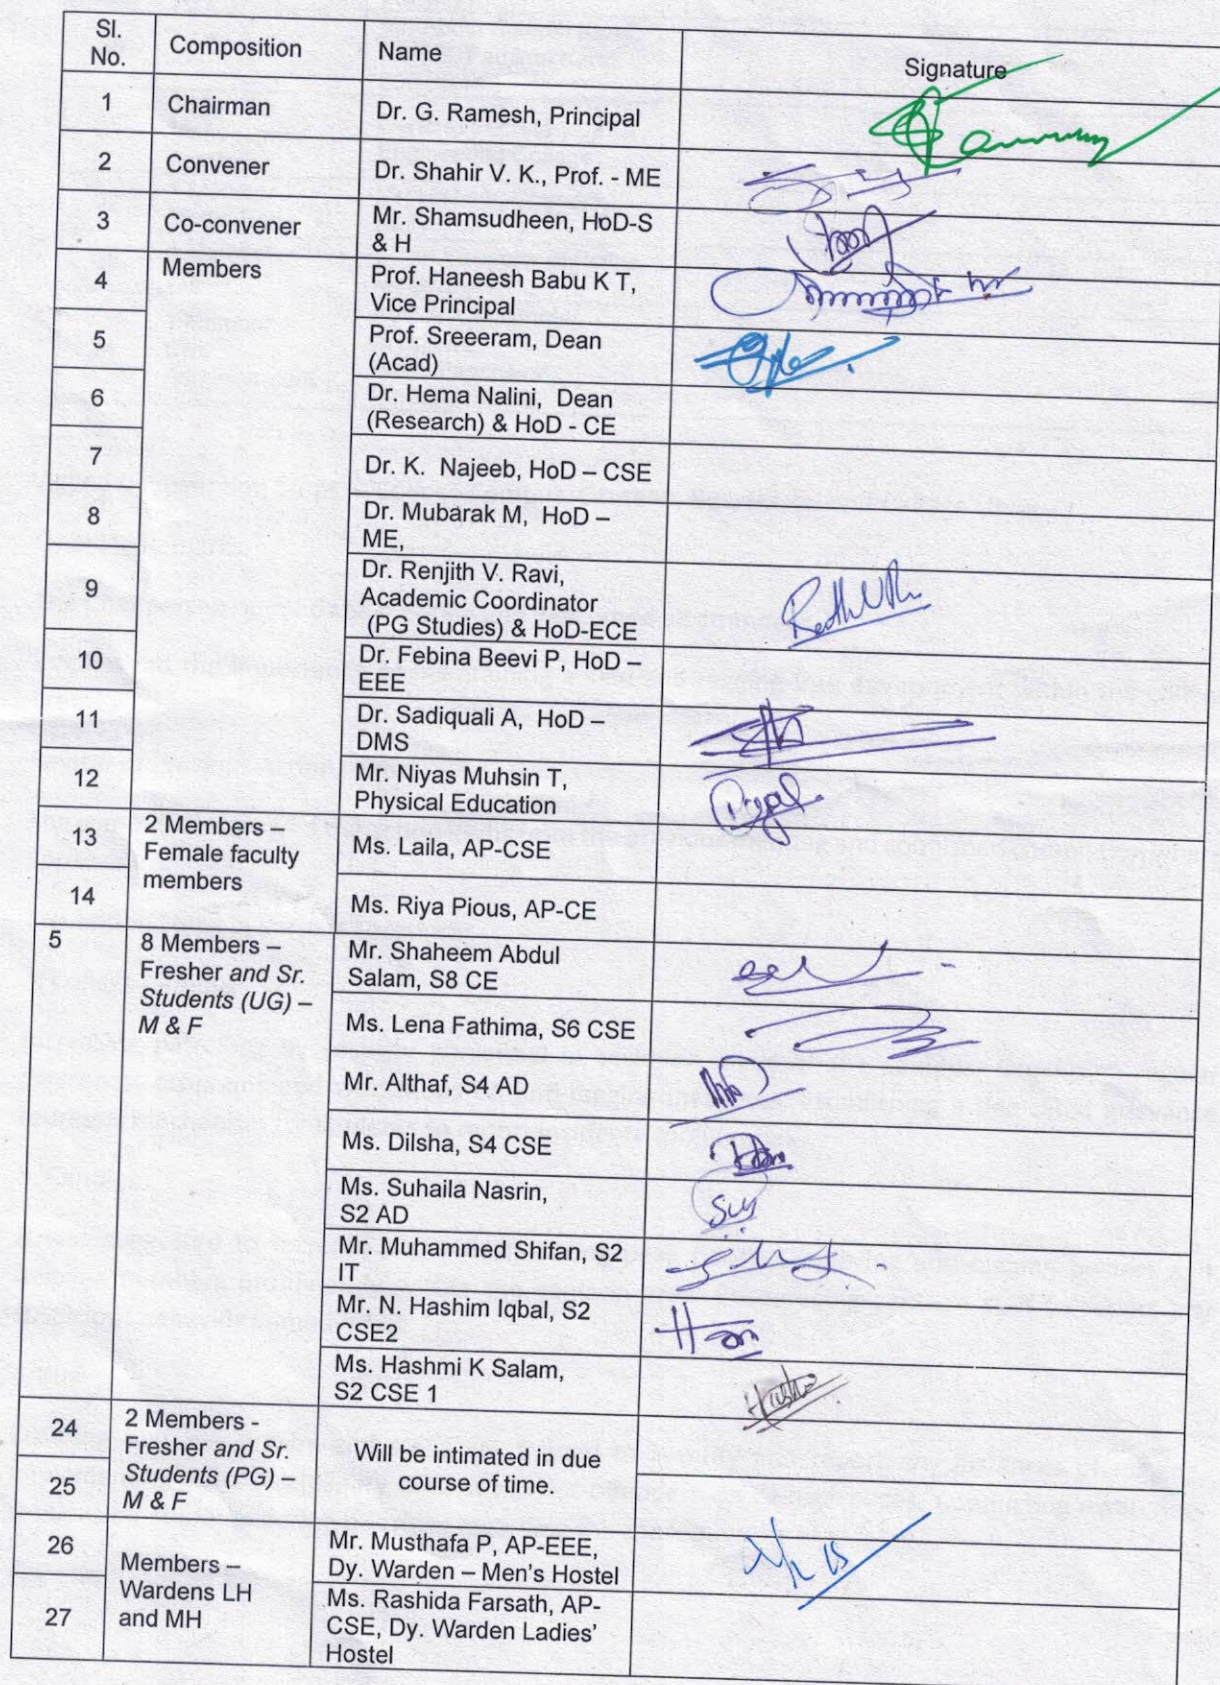 Sl. No. Composition Name Signature
1 Chairman Dr. G. Ramesh, Principal
2 Convener Dr. Shahir V. K., Prof. - ME
3 Co-convener Mr. Shamsudheen, HoD-S
& H
4 Members Prof. Haneesh Babu K T,
Vice Principal
5 Prof. Sreeeram, Dean
(Acad)
6 Dr. Hema Nalini, Dean
(Research) & HoD - CE
7 Dr. K. Najeeb, HoD – CSE
8 Dr. Mubarak M, HoD –
ME,
9 Dr. Renjith V. Ravi,
Academic Coordinator
(PG Studies) & HoD-ECE
10 Dr. Febina Beevi P, HoD –
EEE
11 Dr. Sadiquali A, HoD –
DMS
12 Mr. Niyas Muhsin T,
Physical Education
13 2 Members –
Female faculty
members
Ms. Laila, AP-CSE
14 Ms. Riya Pious, AP-CE
5 8 Members –
Fresher and Sr.
Students (UG) –
M & F
Mr. Shaheem Abdul
Salam, S8 CE
Ms. Lena Fathima, S6 CSE
Mr. Althaf, S4 AD
Ms. Dilsha, S4 CSE
Ms. Suhaila Nasrin,
S2 AD
Mr. Muhammed Shifan, S2
IT
Mr. N. Hashim Iqbal, S2
CSE2
Ms. Hashmi K Salam,
S2 CSE 1
24 2 Members -
Fresher and Sr.
Students (PG) –
M & F
Will be intimated in due
course of time.
25
26 Members –
Wardens LH
and MH
Mr. Musthafa P, AP-EEE,
Dy. Warden – Men's Hostel
27 Ms. Rashida Farsath, AP-
CSE, Dy. Warden Ladies'
Hostel